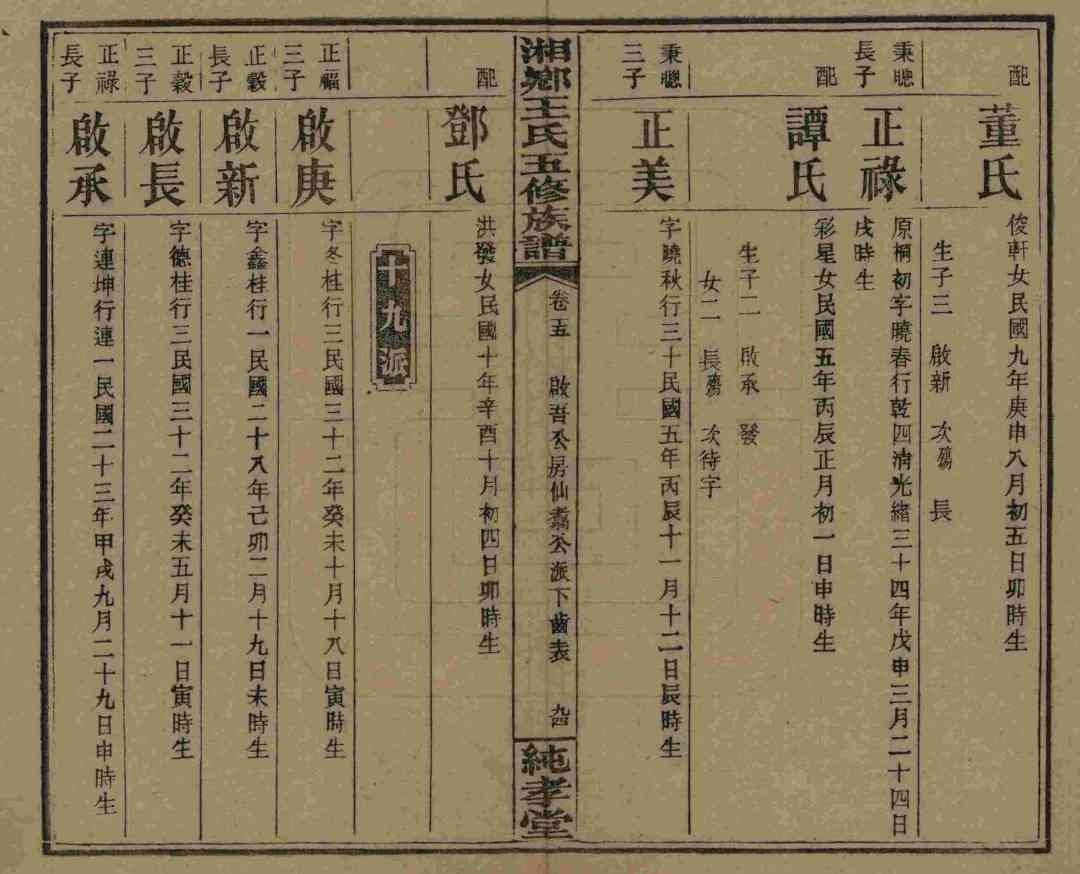 配
董氏
俊軒女民國九年庚申八月初五日卯時生
生子三 啟新 次殤 長
秉聰長子
正祿
原桐初字曉春行乾四淸光緒三十四年戊申三月二十四日
戌時生
配
譚氏
彩星女民國五年丙辰正月初一日申時生
生子二 啟承 發
女二 長殤 次待字
秉聰三子
正美
字曉秋行三十民國五年丙辰十一月十二日辰時生
湘鄉王氏五修族譜
卷五
啟吾公房仙翥公派下齒表
九四
純孝堂
配
鄧氏
洪發女民國十年辛酉十月初四日卯時生
十九派
正福三子
啟庚
字冬桂行三民國三十二年癸未十月十八日寅時生
正穀長子
啟新
字鑫桂行一民國二十八年己卯二月十九日未時生
正穀三子
啟長
字德桂行三民國三十二年癸未五月十一日寅時生
正祿長子
啟承
字連坤行連一民國二十三年甲戌九月二十九日申時生